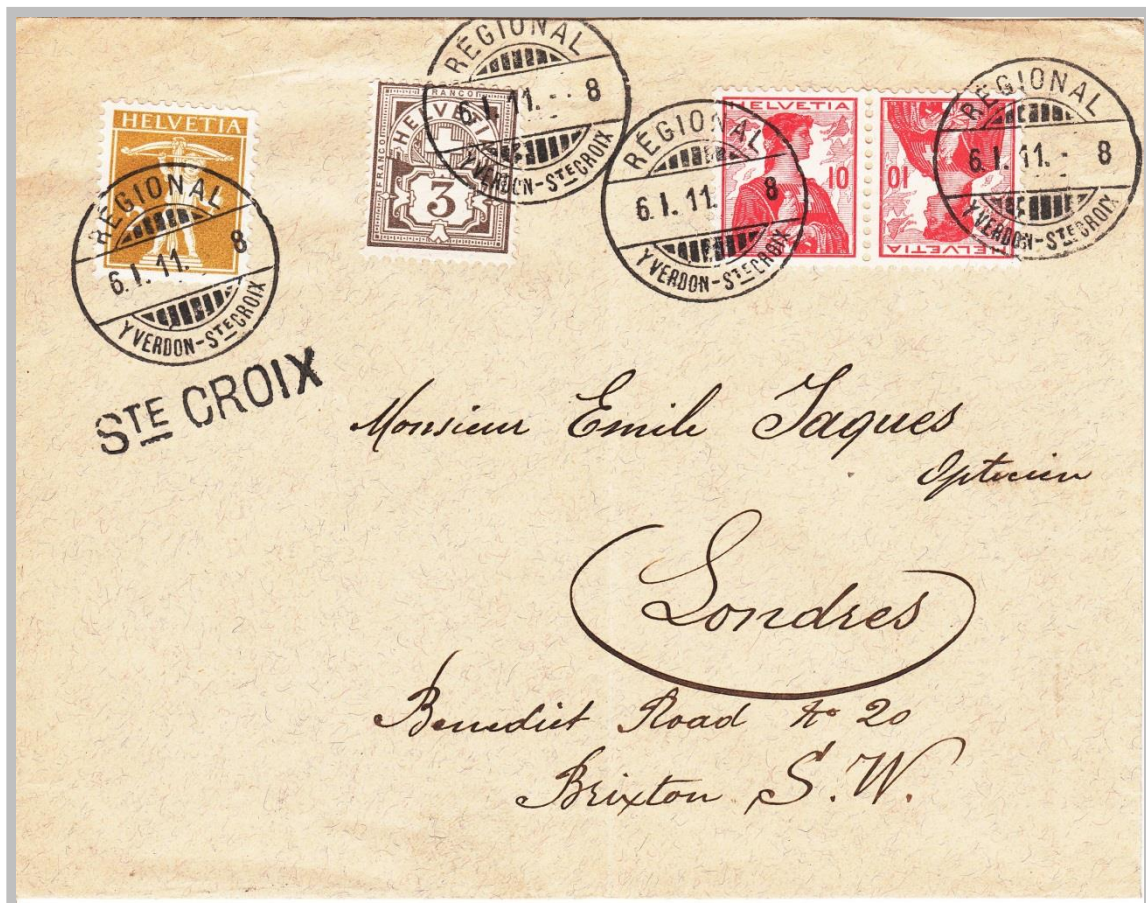 HELVETIA
RÉGIONAL
6.I.11. 8
YVERDON-STE CROIX
FRANCO
HELVETIA
FRANCO
3
RÉGIONAL
6.I.11. - - 8
YVERDON-STE CROIX
HELVETIA
10
RÉGIONAL
6.I.11. 8
YVERDON-STE CROIX
HELVETIA
10
RÉGIONAL
6.I.11. - 8
YVERDON-STE CROIX
STE CROIX
Monsieur Emile Jaques
Opticien
Londres
Benedict Road No 20
Brixton S.W.